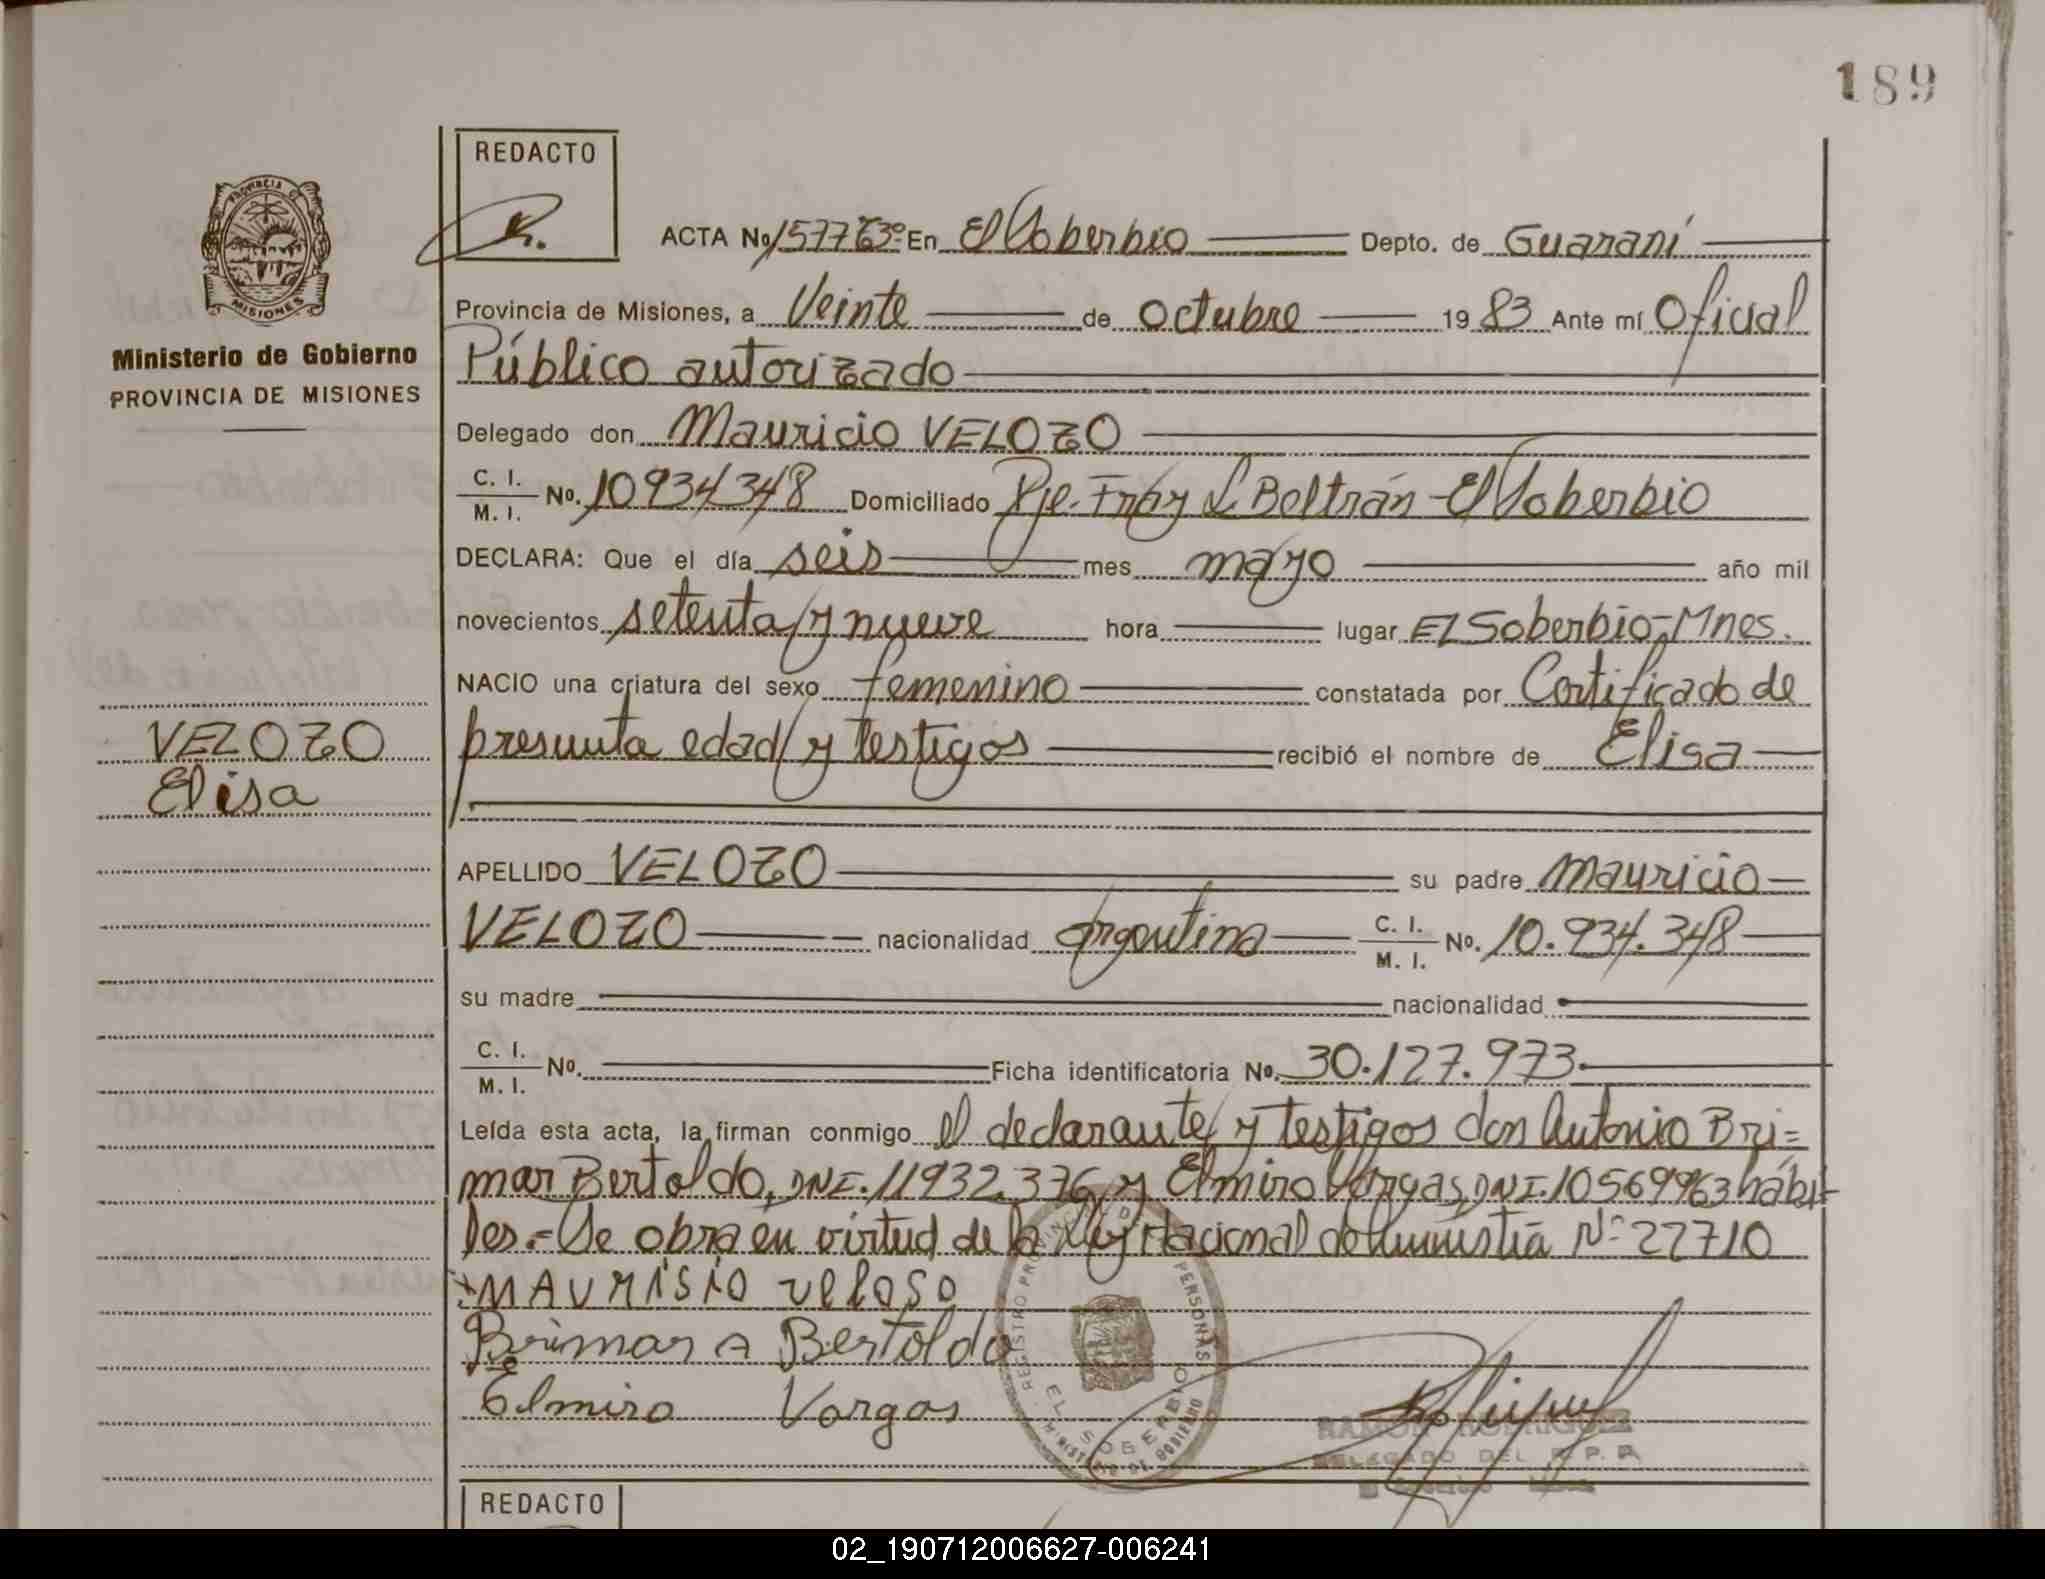 189
REDACTO
R.
PROVINCIA DE
MISIONES
Ministerio de Gobierno
PROVINCIA DE MISIONES
ACTA No 157763º En El Soberbio Depto. de Guaraní
Provincia de Misiones, a Veinte de Octubre 1983 Ante mí Oficial
Público autorizado
Delegado don Mauricio VELOZO
C. I. M. I. No. 10934348 Domiciliado Pje. Fray L Beltrán - El Soberbio
DECLARA: Que el día seis mes mayo año mil
novecientos setenta y nueve hora lugar El Soberbio, Mnes.
NACIO una criatura del sexo femenino constatada por Certificado de
presunta edad y testigos recibió el nombre de Elisa
VELOZO
Elisa
APELLIDO VELOZO su padre Mauricio
VELOZO nacionalidad Argentina C. I. M. I. No. 10.934.348
su madre nacionalidad
C. I. M. I. No. Ficha identificatoria No. 30.127.973.
Leída esta acta, la firman conmigo el declarante y testigos don Antonio Bri=
mar Bertoldo, DNI. 11932.376 y Elmiro Vargas, DNI. 10569963 hábi-
les.- Se obra en virtud de la Ley Nacional de Amnistía Nº 22710
MAURISIO VELOSO
Brimar A Bertoldo
Elmiro Vargas
REGISTRO PROVINCIAL DE PERSONAS
EL SOBERBIO
MINISTERIO DE GOBIERNO
RAMON RODRIGUEZ
DELEGADO DEL R. P. P.
El Soberbio Mnes.
REDACTO
02_190712006627-006241